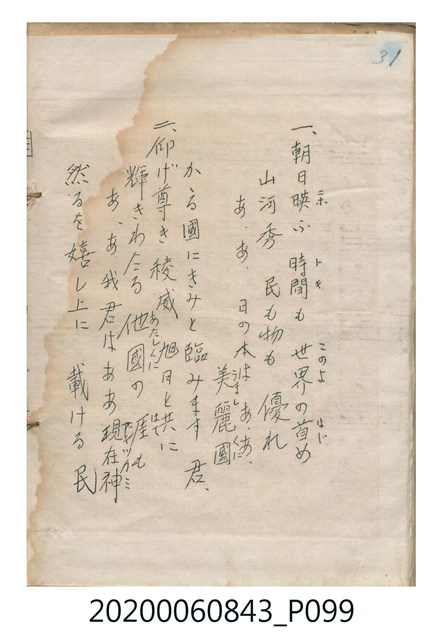 31
一、朝日映ふ 時間も 世界の首め
山河秀 民も物も 優れ
あゝあ、日の本は あゝあゝ
美麗國
かゝる國にきみと臨みます 君、
二、仰げ尊き 稜威 旭日と共に
輝きわたる 他國の 涯も
あゝあ 我君は ああ 現在神
然るを嬉し上に 載ける 民
20200060843_P099